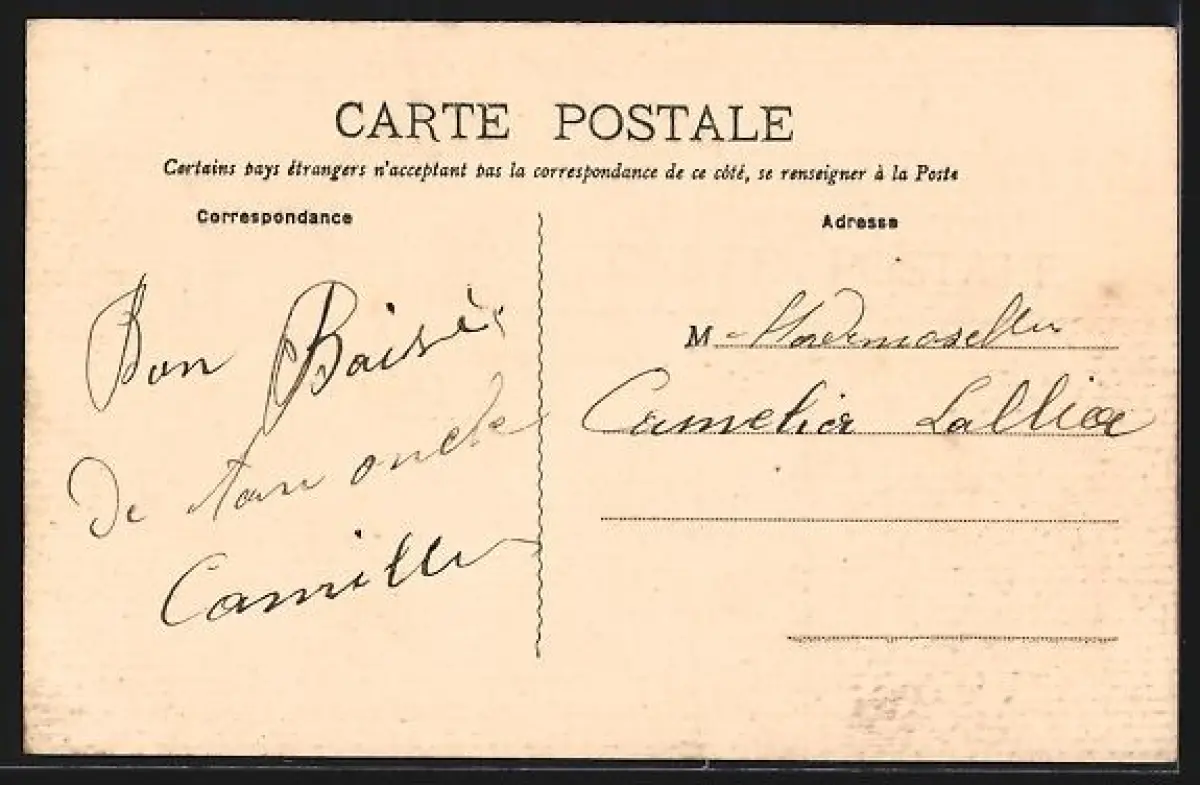 CARTE POSTALE
Certains pays étrangers n'acceptant pas la correspondance de ce côté, se renseigner à la Poste
Correspondance
Adresse
Bon Baisè
De ton oncle
Camille
M Mademoiselle
Camelia Lallice